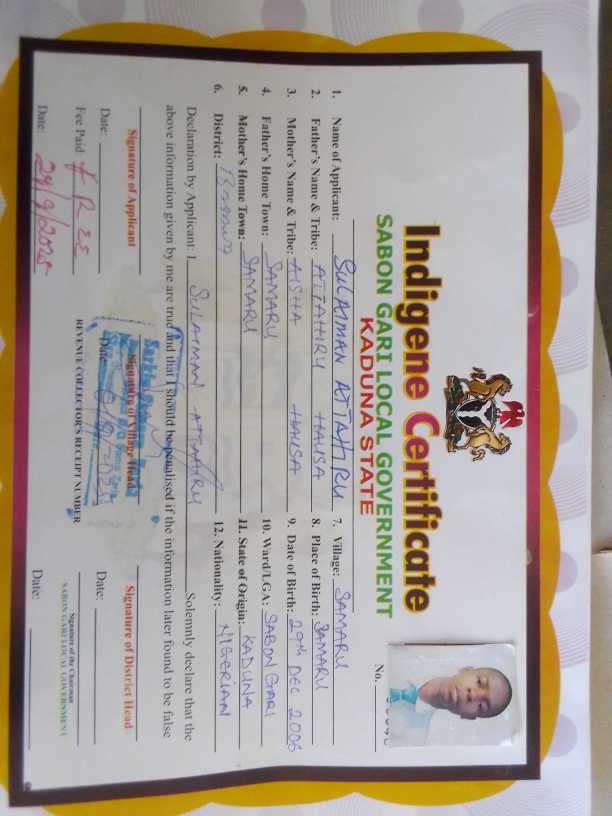 Indigene Certificate
SABON GARI LOCAL GOVERNMENT
KADUNA STATE
No.
1. Name of Applicant: SULAIMAN ATTAHIRU
2. Father's Name & Tribe: ATTAHIRU HAUSA
3. Mother's Name & Tribe: AISHA HAUSA
4. Father's Home Town: SAMARU
5. Mother's Home Town: SAMARU
6. District:
7. Village: SAMARU
8. Place of Birth: SAMARU
9. Date of Birth: 29th DEC 2006
10. Ward/LGA: SABON GARI
11. State of Origin: KADUNA
12. Nationality: NIGERIAN
Declaration by Applicant: I SULAIMAN ATTAHIRU Solemnly declare that the
above information given by me are true and that I should be penalised if the information later found to be false
Signature of Applicant
Date:
Signature of Village Head
Date:
Signature of District Head
Date:
Fee Paid
REVENUE COLLECTOR'S RECEIPT NUMBER
Signature of the Chairman
SABON GARI LOCAL GOVERNMENT
Date: 29/9/2025
Date: